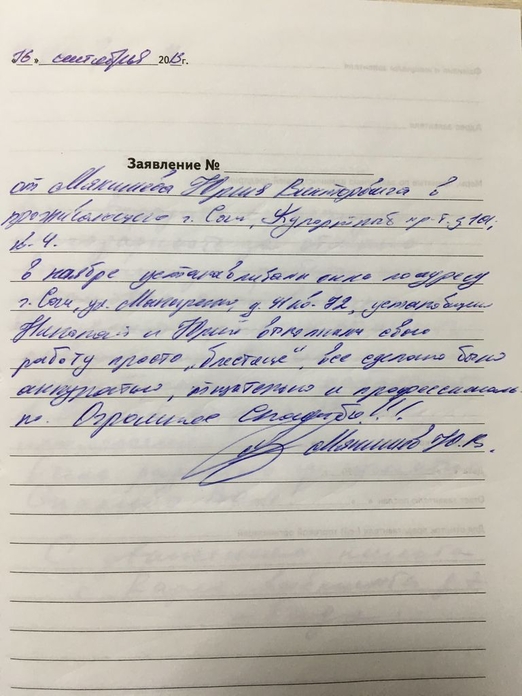 16 » сентября 2015 г.
Заявление №
от Мякишева Юрия Викторовича в
г. Сочи, Курортный пр-т, д 101,
к. 4.
В ноябре устанавливали окна по адресу
г. Сочи, ул. д. 41 кв. 72, установщики
Николай и Юрий выполнили свою
работу просто „блестаще", все сделано было
аккуратно, тщательно и профессиональ-
но. Огромное Спасибо!!!
Мякишев Ю. В.